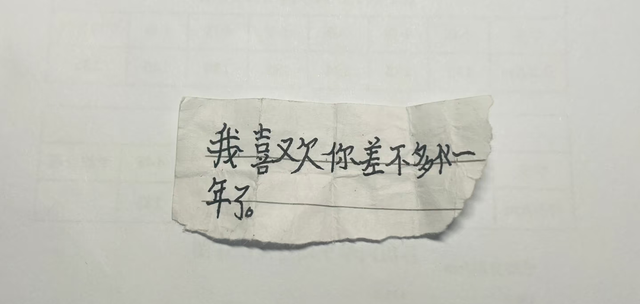 我喜欢你差不多一
年了。